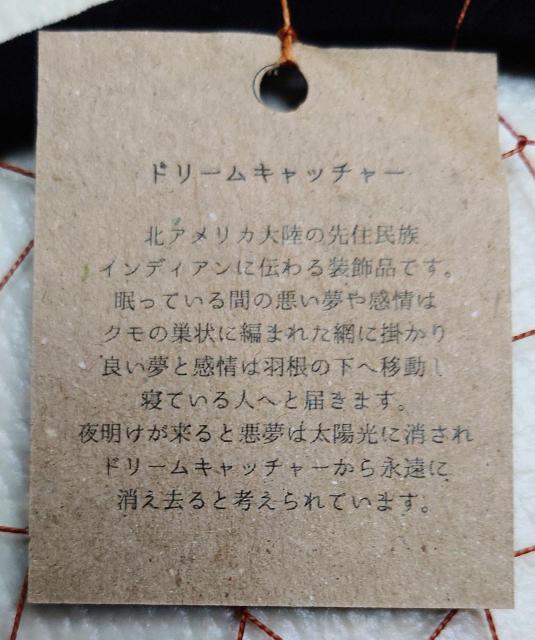 ドリームキャッチャー
北アメリカ大陸の先住民族
インディアンに伝わる装飾品です。
眠っている間の悪い夢や感情は
クモの巣状に編まれた網に掛かり
良い夢と感情は羽根の下へ移動し
寝ている人へと届きます。
夜明けが来ると悪夢は太陽光に消され
ドリームキャッチャーから永遠に
消え去ると考えられています。